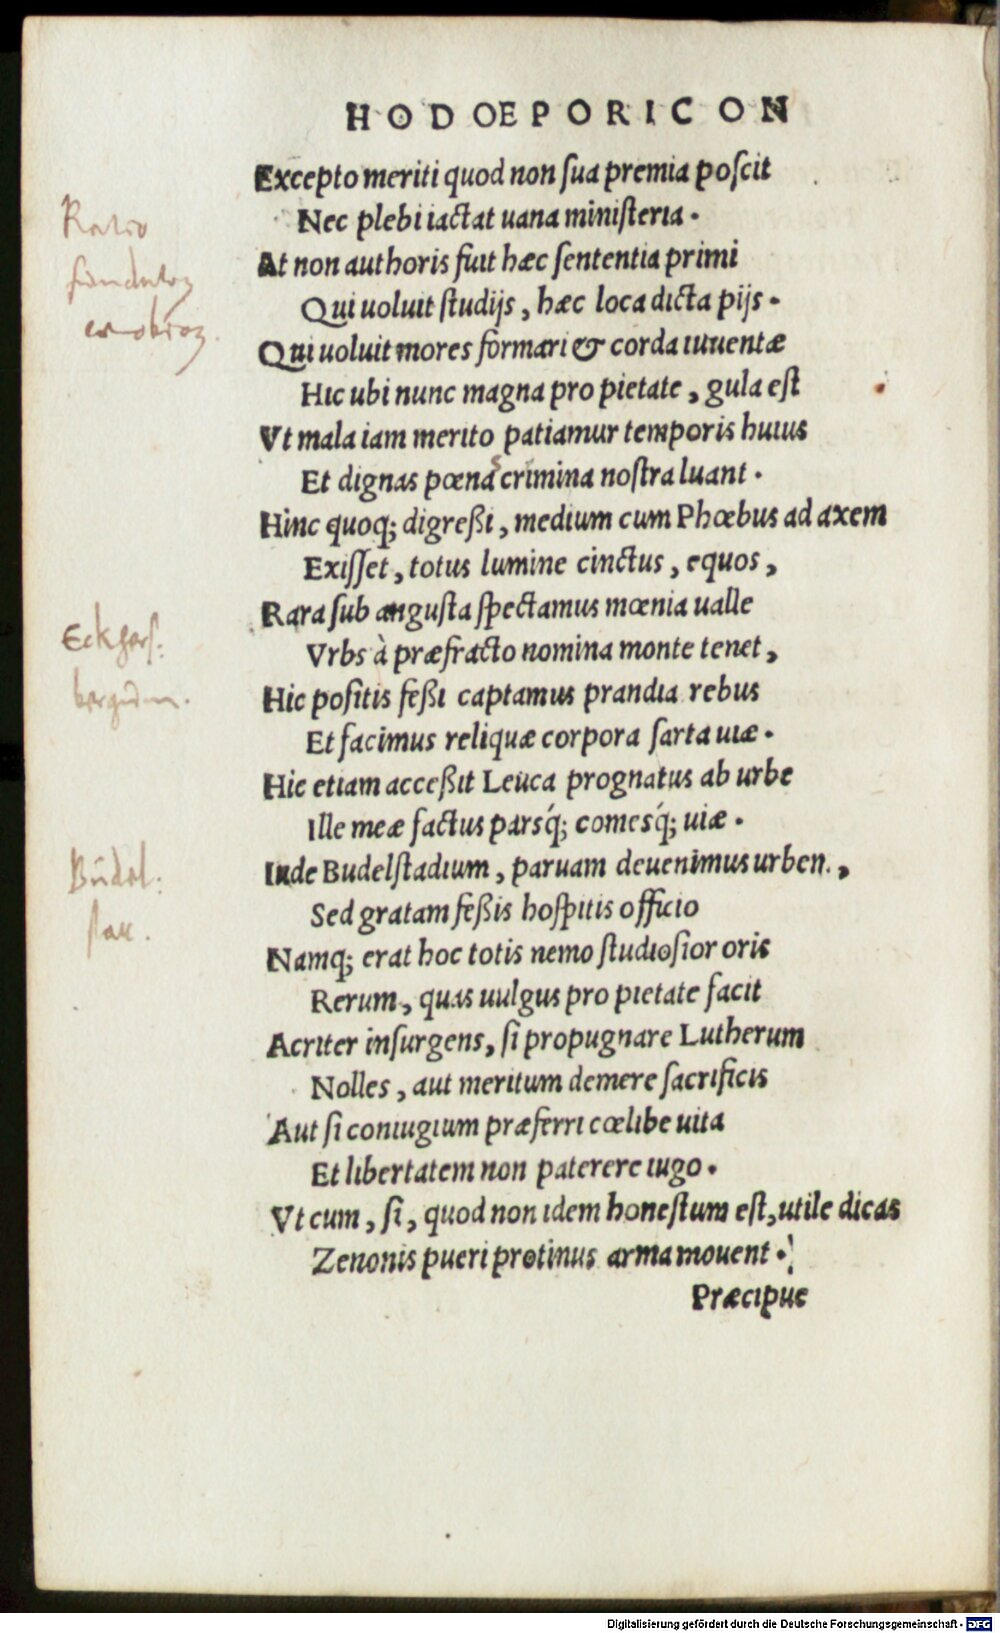 HODOEPORICON
Excepto meriti quod non ſua premia poſcit
Nec plebi iactat uana miniſteria .
At non authoris fuit hæc ſententia primi
Qui uoluit ſtudijs , hæc loca dicta pijs .
Qui uoluit mores formari & corda iuuentæ
Hic ubi nunc magna pro pietate , gula eſt
Vt mala iam merito patiamur temporis huius
Et dignas pœnas crimina noſtra luant .
Hinc quoq; digreßi , medium cum Phœbus ad axem
Exiſſet , totus lumine cinctus , equos ,
Rara ſub anguſta ſpectamus mœnia ualle
Vrbs à præfracto nomina monte tenet ,
Hic poſitis feßi captamus prandia rebus
Et facimus reliquæ corpora ſarta uiæ .
Hic etiam acceßit Leuca prognatus ab urbe
Ille meæ factus parsq́; comesq́; uiæ .
Inde Budelſtadium , paruam deuenimus urben. ,
Sed gratam feßis hoſpitis officio
Namq; erat hoc totis nemo ſtudioſior oris
Rerum , quas uulgus pro pietate facit
Acriter inſurgens , ſi propugnare Lutherum
Nolles , aut meritum demere ſacrificis
Aut ſi coniugium præferri cœlibe uita
Et libertatem non paterere iugo .
Vt cum , ſi , quod non idem honeſtum eſt, utile dicas
Zenonis pueri protinus arma mouent .
Præcipue
Ratio
Eckhars:
bergum.
Budel:
stat.